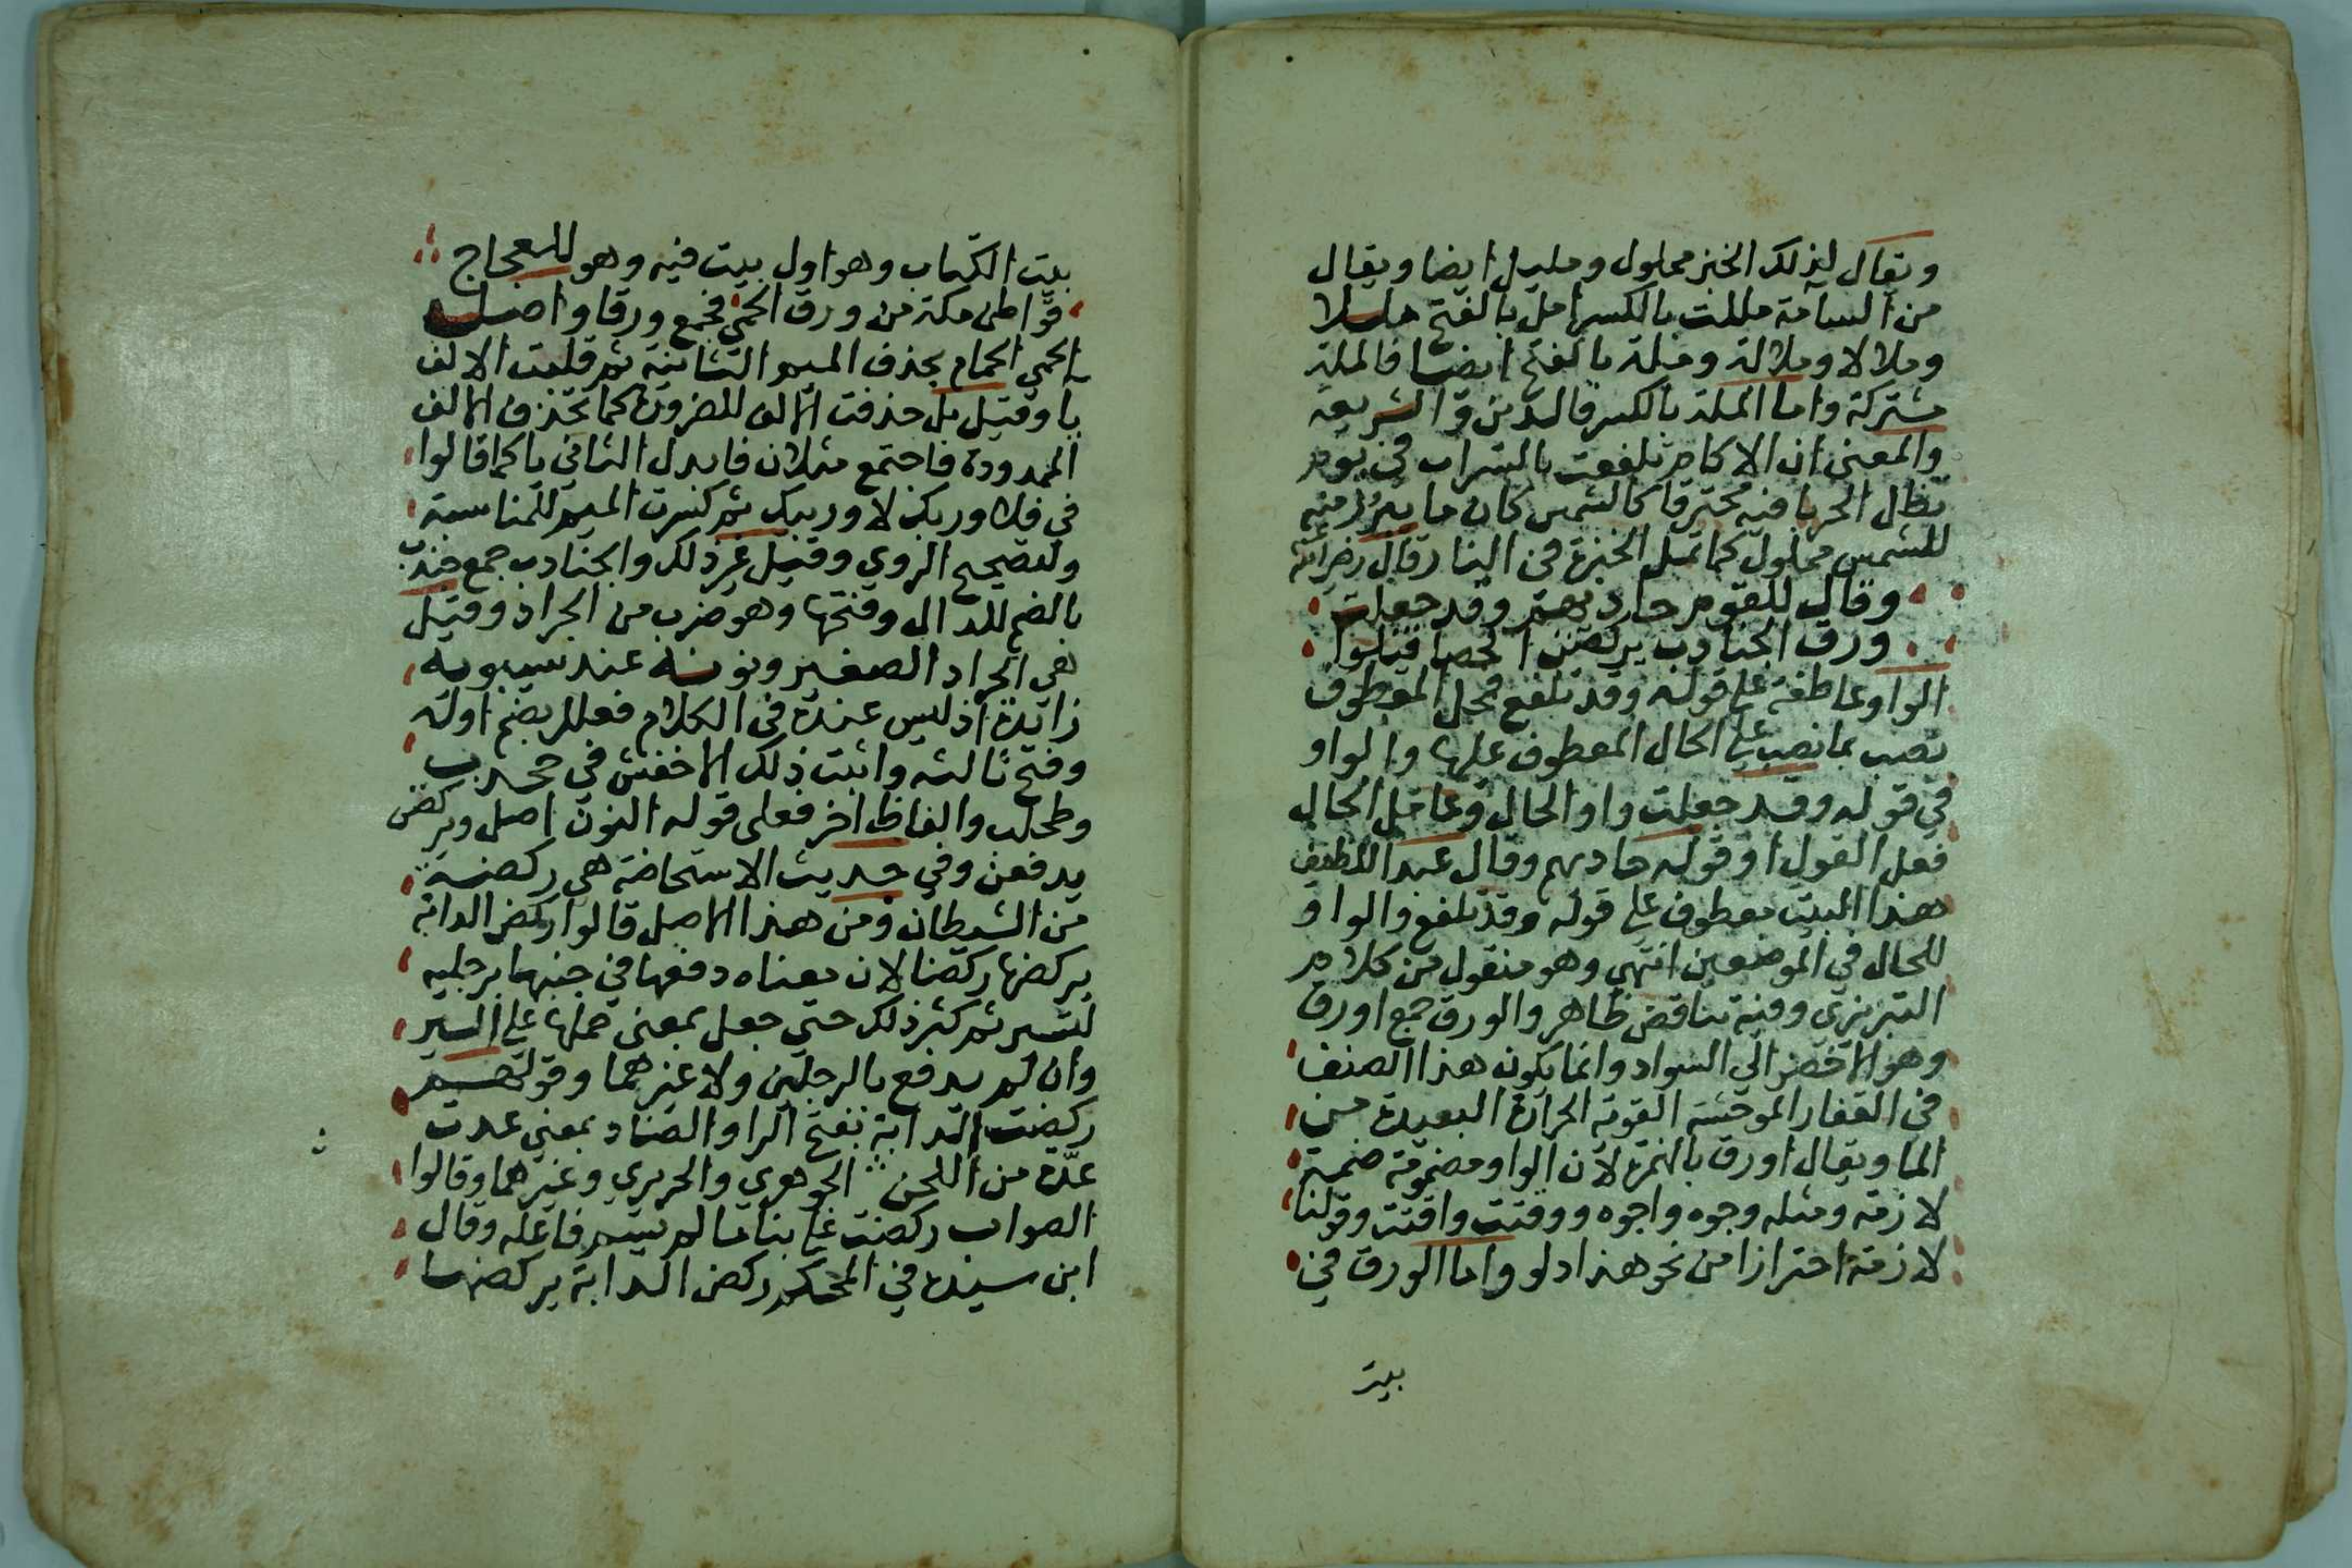 ويقال لذلك الخبز مملول ومليل ايضا ويقال
من السآمة مللت بالكسر امل بالفتح مللا
وملالا وملالة وملة بالفتح ايضا فالملة
مشتركة واما الملة بالكسر فالدين والشريعة
والمعنى ان الاكام تلفعت بالسراب في يوم
يظل الحربا فيه محترقا كالشمس كان ما يبرز منه
للشمس مملول كما تمل الخبزة في النار قال رضي الله عنه
وقال للقوم حاديهم وقد جعلت
ورق الجنادب يركضن الحصا قيلوا
الواو عاطفة على قوله وقد تلفع فمحل المعطوف
نصب بما نصب على الحال المعطوف عليها والواو
في قوله وقد جعلت واو الحال وعامل الحال
فعل القول او قوله حاديهم وقال عبد اللطيف
هذا البيت معطوف على قوله وقد تلفع والواو
للحال في الموضعين انتهي وهو منقول من كلام
التبريزي وفيه تناقض ظاهر والورق جمع اورق
وهو الاخضر الي السواد وانما يكون هذا الصنف
في القفار الموحشة القوية الحرارة البعيدة من
الما ويقال اورق بالهمزة لان الواو مضمومة ضمة
لازمة ومثله وجوه واجوه ووقتت واقتت وقولنا
لازمة احترازا من نحو هذا دلو واما الورق في
بيت
بيت الكتاب وهو اول بيت فيه وهو للعجاج
قواطن مكة من ورق الحمي فجمع ورقا واصل
الحمي الحمام بحذف الميم الثانية ثم قلبت الالف
يا وقيل بل حذفت الالف للضرورة كما تحذف الالف
الممدودة فاجتمع مثلان فابدل الثاني يا كما قالوا
في فلا وربك لا وربيك ثم كسرت الميم للمناسبة
ولتصحيح الروي وقيل غير ذلك والجنادب جمع جندب
بالضم للدال وفتحها وهو ضرب من الجراد وقيل
هي الجراد الصغير ونونه عند سيبويه
زايدة اذ ليس عنده في الكلام فعلل بضم اوله
وفتح ثالثه واثبت ذلك الاخفش في جحدب
وطحلب والفاظ اخر فعلى قوله النون اصل ويركضن
يدفعن وفي حديث الاستحاضة هي ركضة
من الشيطان ومن هذا الاصل قالوا ركض الدابة
يركضها ركضا لان معناه دفعها في جنبها برجليه
لتسير ثم كثر ذلك حتي جعل بمعنى حملها على السير
وان لم يدفع بالرجلين ولا غيرهما وقولهم
ركضت الدابة بفتح الرا والضاد بمعني عدت
عدة من اللحن الجوهري والحريري وغيرهما وقالوا
الصواب ركضت على بنا ما لم يسم فاعله وقال
ابن سيده في المحكم ركض الدابة يركضها